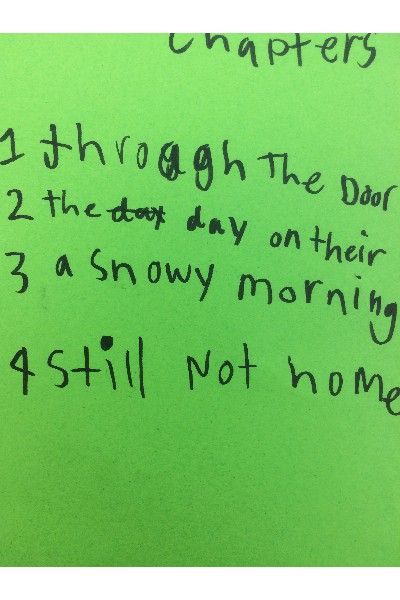 Chapters
1 through The Door
2 the day on their
3 a snowy morning
4 still Not home